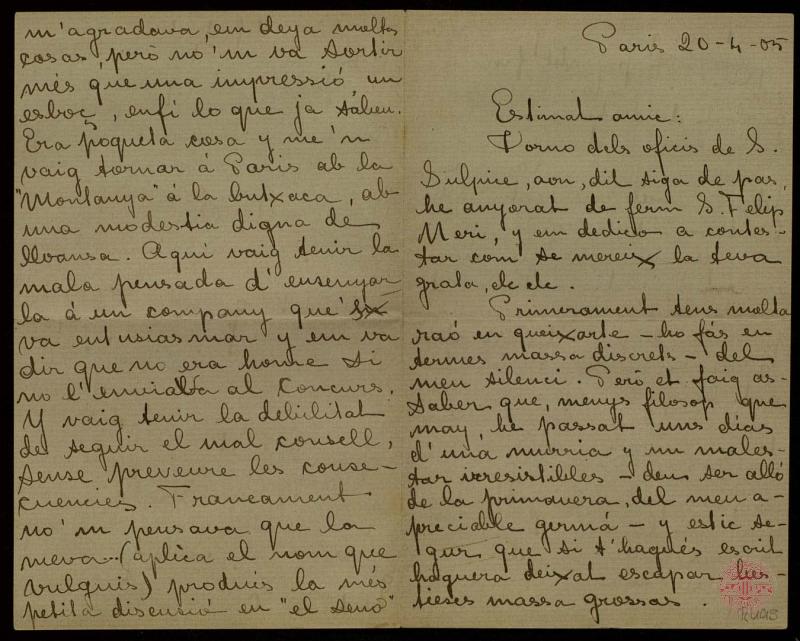 Paris 20-4-05
Estimat amic:
Torno dels oficis de S.
Sulpice, aon, dit siga de pas,
he anyorat de ferm S. Felip
Neri, y em dedico a contes-
tar com se mereix la teva
grata, etc etc.
Primerament tens molta
raó en queixarte - ho fás en
termes massa discrets - del
meu silenci. Peró et faig as-
saber que, menys filosop que
may, he passat uns dias
d'una murria y un males-
tar irresistibles - deu ser alló
de la primavera, del meu a-
preciable germá - y estic se-
gur que si t'hagués escrit
haguera deixat escapar bes-
tieses massa grossas.
m'agradava, em deya moltas
cosas, peró no'm va sortir
més que una impressió, un
esboç, enfí lo que ja sabeu.
Era poqueta cosa y me'n
vaig tornar á Paris ab la
"Montanya" á la butxaca, ab
una modestia digna de
lloansa. Aquí vaig tenir la
mala pensada d'ensenyar
la á un company que's
va entusiasmar y em va
dir que no era home si
no l'enviava al Concurs.
Y vaig tenir la debilitat
de seguir el mal consell,
sense preveure les conse-
cuencies. Francament
no'm pensava que la
meva... (aplica el nom que
vulguis) produis la més
petita discusió en "el Seno"